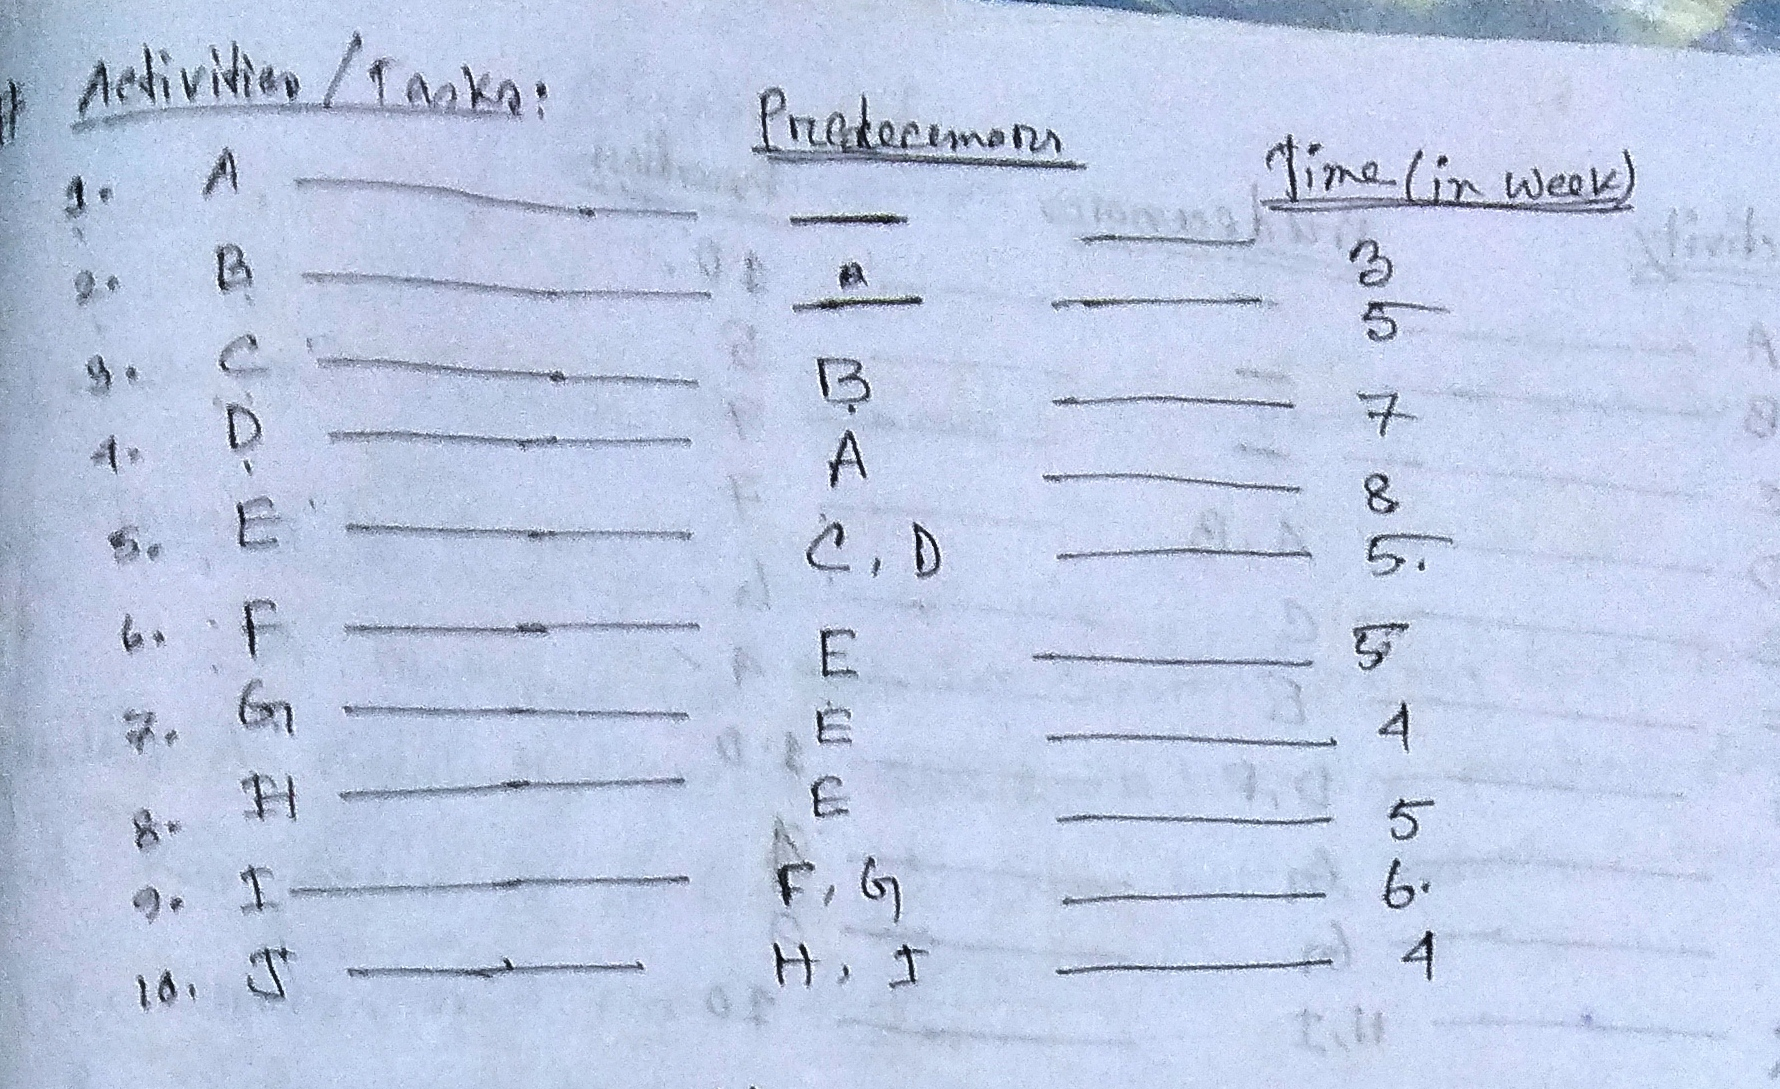 Activities / Tasks: Predecessors Time (in week)
1. A — — — 3
2. B — A — 5
3. C — B — 7
4. D — A — 8
5. E — C, D — 5.
6. F — E — 5
7. G — E — 4
8. H — E — 5
9. I — F, G — 6.
10. J — H, I — 4